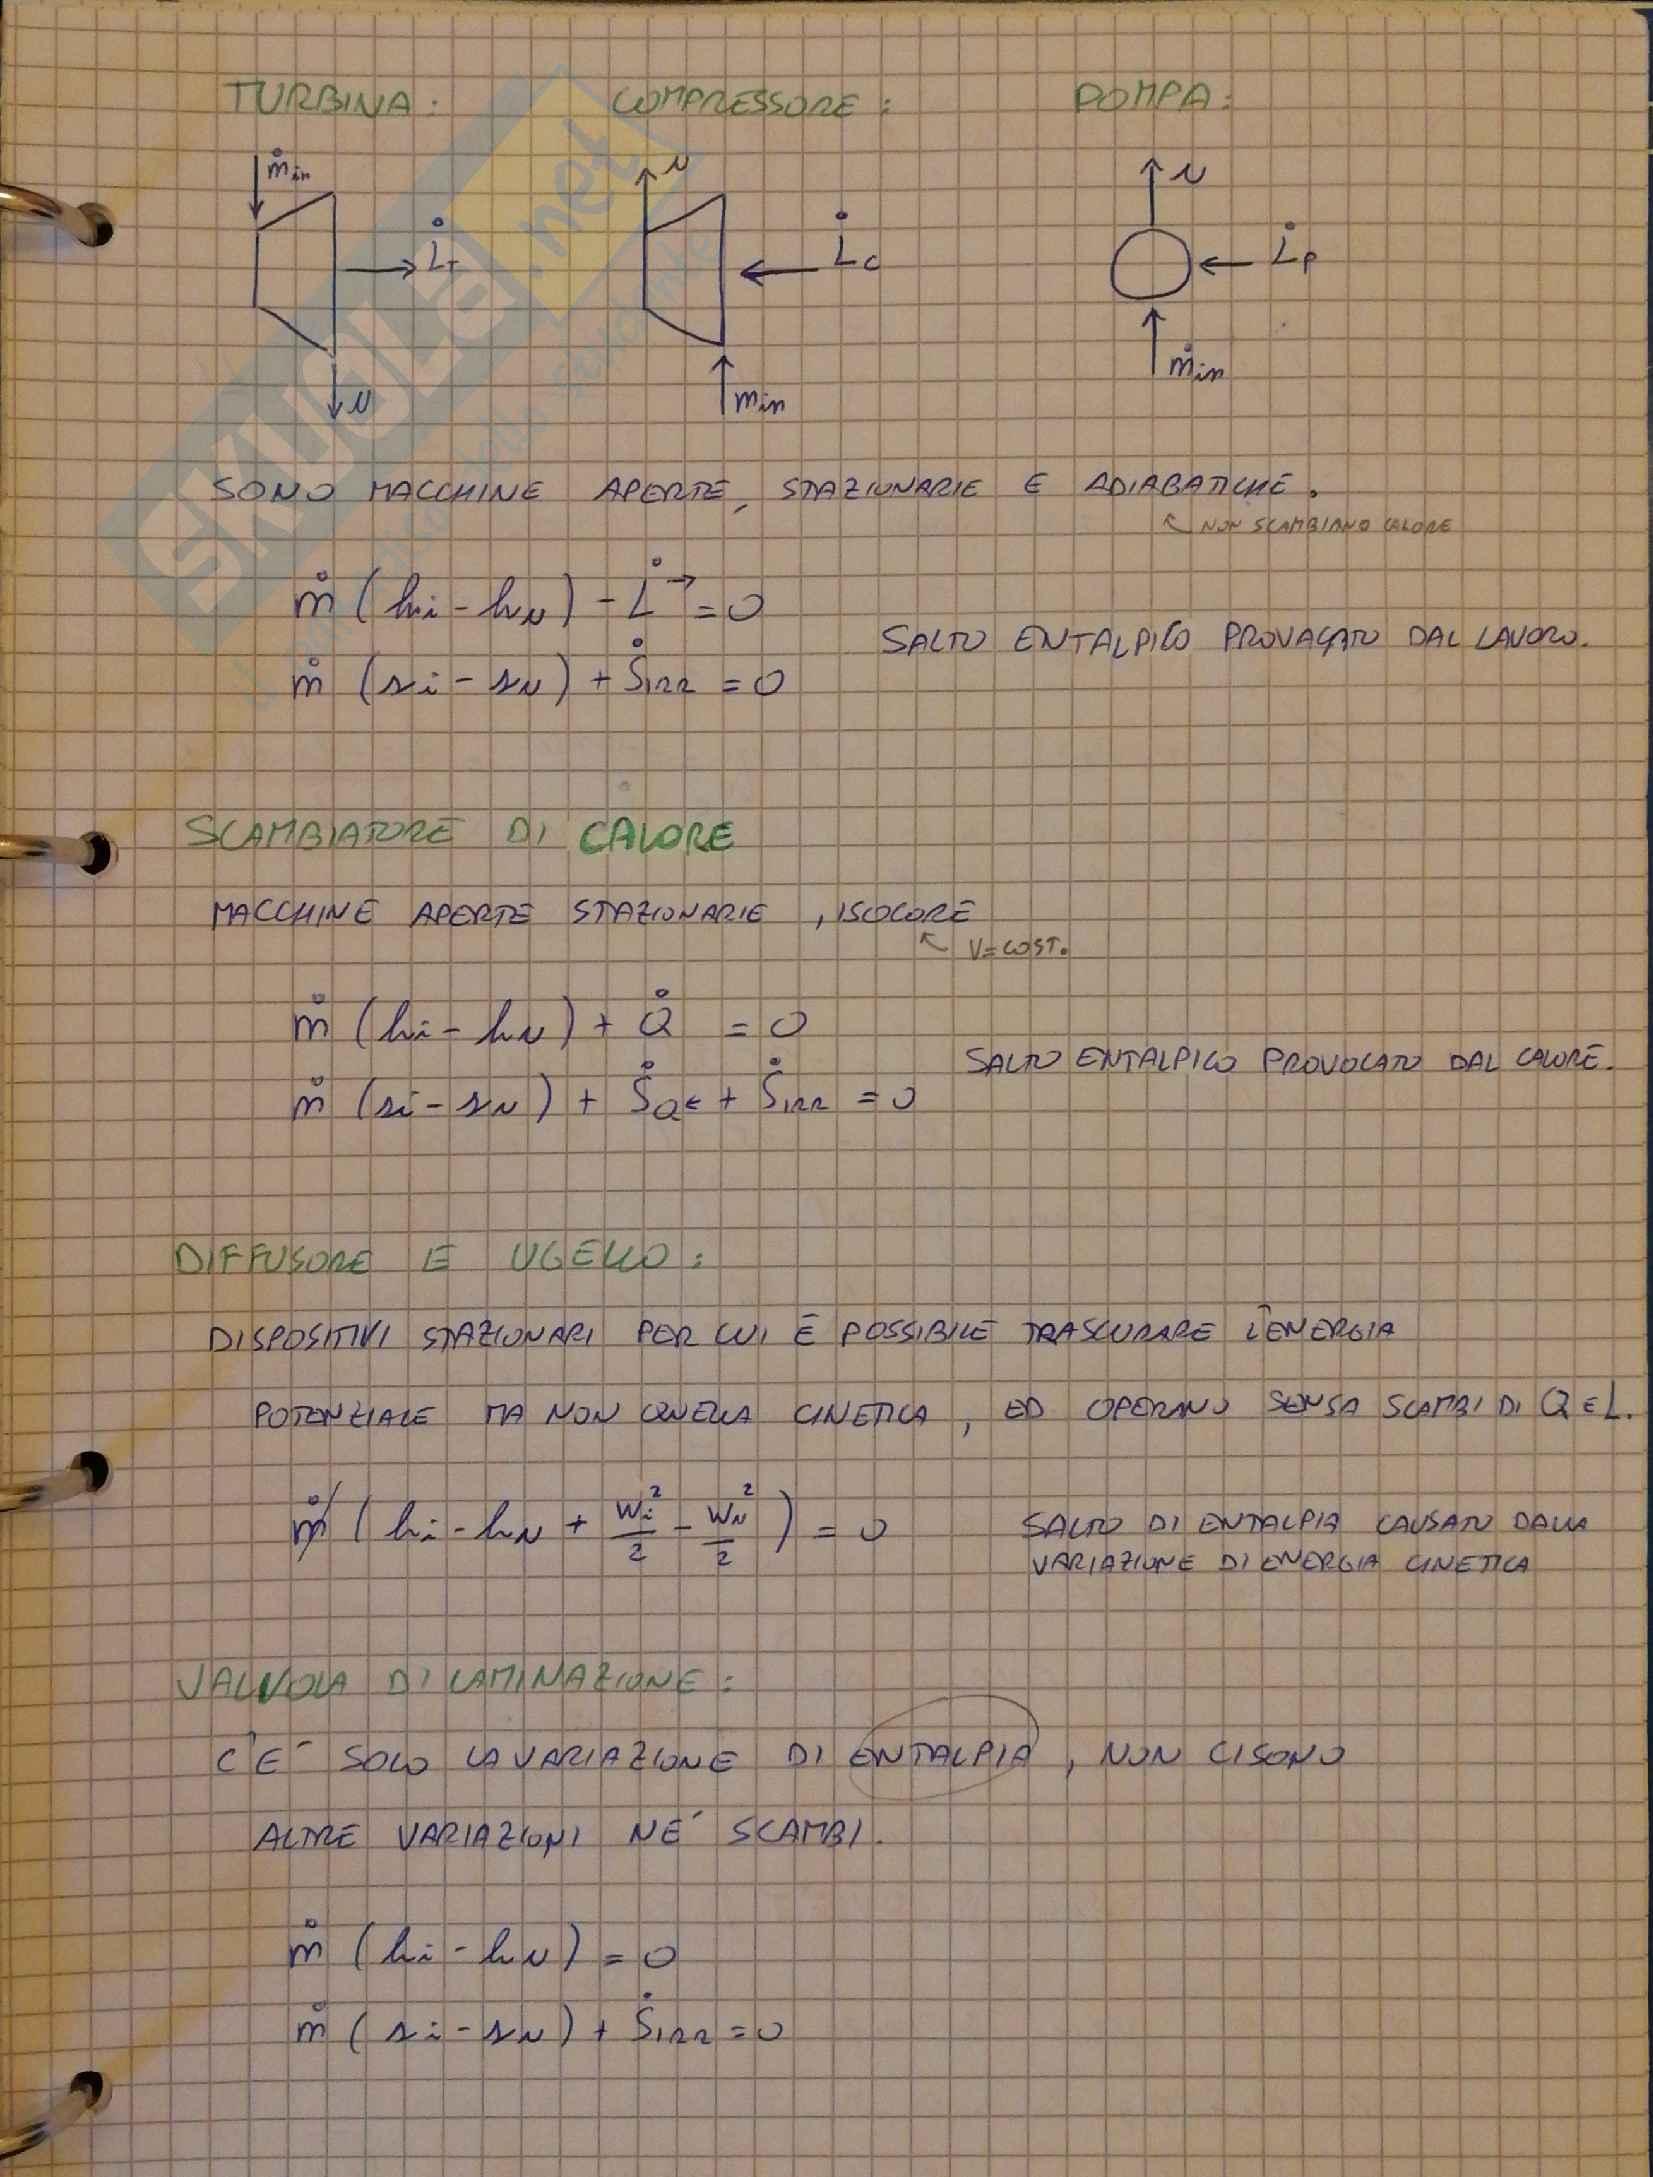 TURBINA: COMPRESSORE: POMPA:
ṁin N N
L̇T L̇C L̇P
N ṁin ṁin
SONO MACCHINE APERTE, STAZIONARIE E ADIABATICHE.
NON SCAMBIANO CALORE
ṁ (hi - hN) - L̇→ = 0
SALTO ENTALPICO PROVACATO DAL LAVORO.
ṁ (si - sN) + ṠIRR = 0
SCAMBIATORE DI CALORE
MACCHINE APERTE STAZIONARIE, ISOCORE
V=COST.
ṁ (hi - hN) + Q̇ = 0
SALTO ENTALPICO PROVOCATO DAL CALORE.
ṁ (si - sN) + ṠQ← + ṠIRR = 0
DIFFUSORE E UGELLO:
DISPOSITIVI STAZIONARI PER CUI È POSSIBILE TRASCURARE L'ENERGIA
POTENZIALE MA NON QUELLA CINETICA, ED OPERANO SENSA SCAMBI DI Q E L.
ṁ (hi - hN + wi²/2 - wN²/2) = 0
SALTO DI ENTALPIA CAUSATO DALLA
VARIAZIONE DI ENERGIA CINETICA
VALVOLA DI LAMINAZIONE:
C'E' SOLO LA VARIAZIONE DI ENTALPIA, NON CI SONO
ALTRE VARIAZIONI NE' SCAMBI.
ṁ (hi - hN) = 0
ṁ (si - sN) + ṠIRR = 0
SKUOLA.net